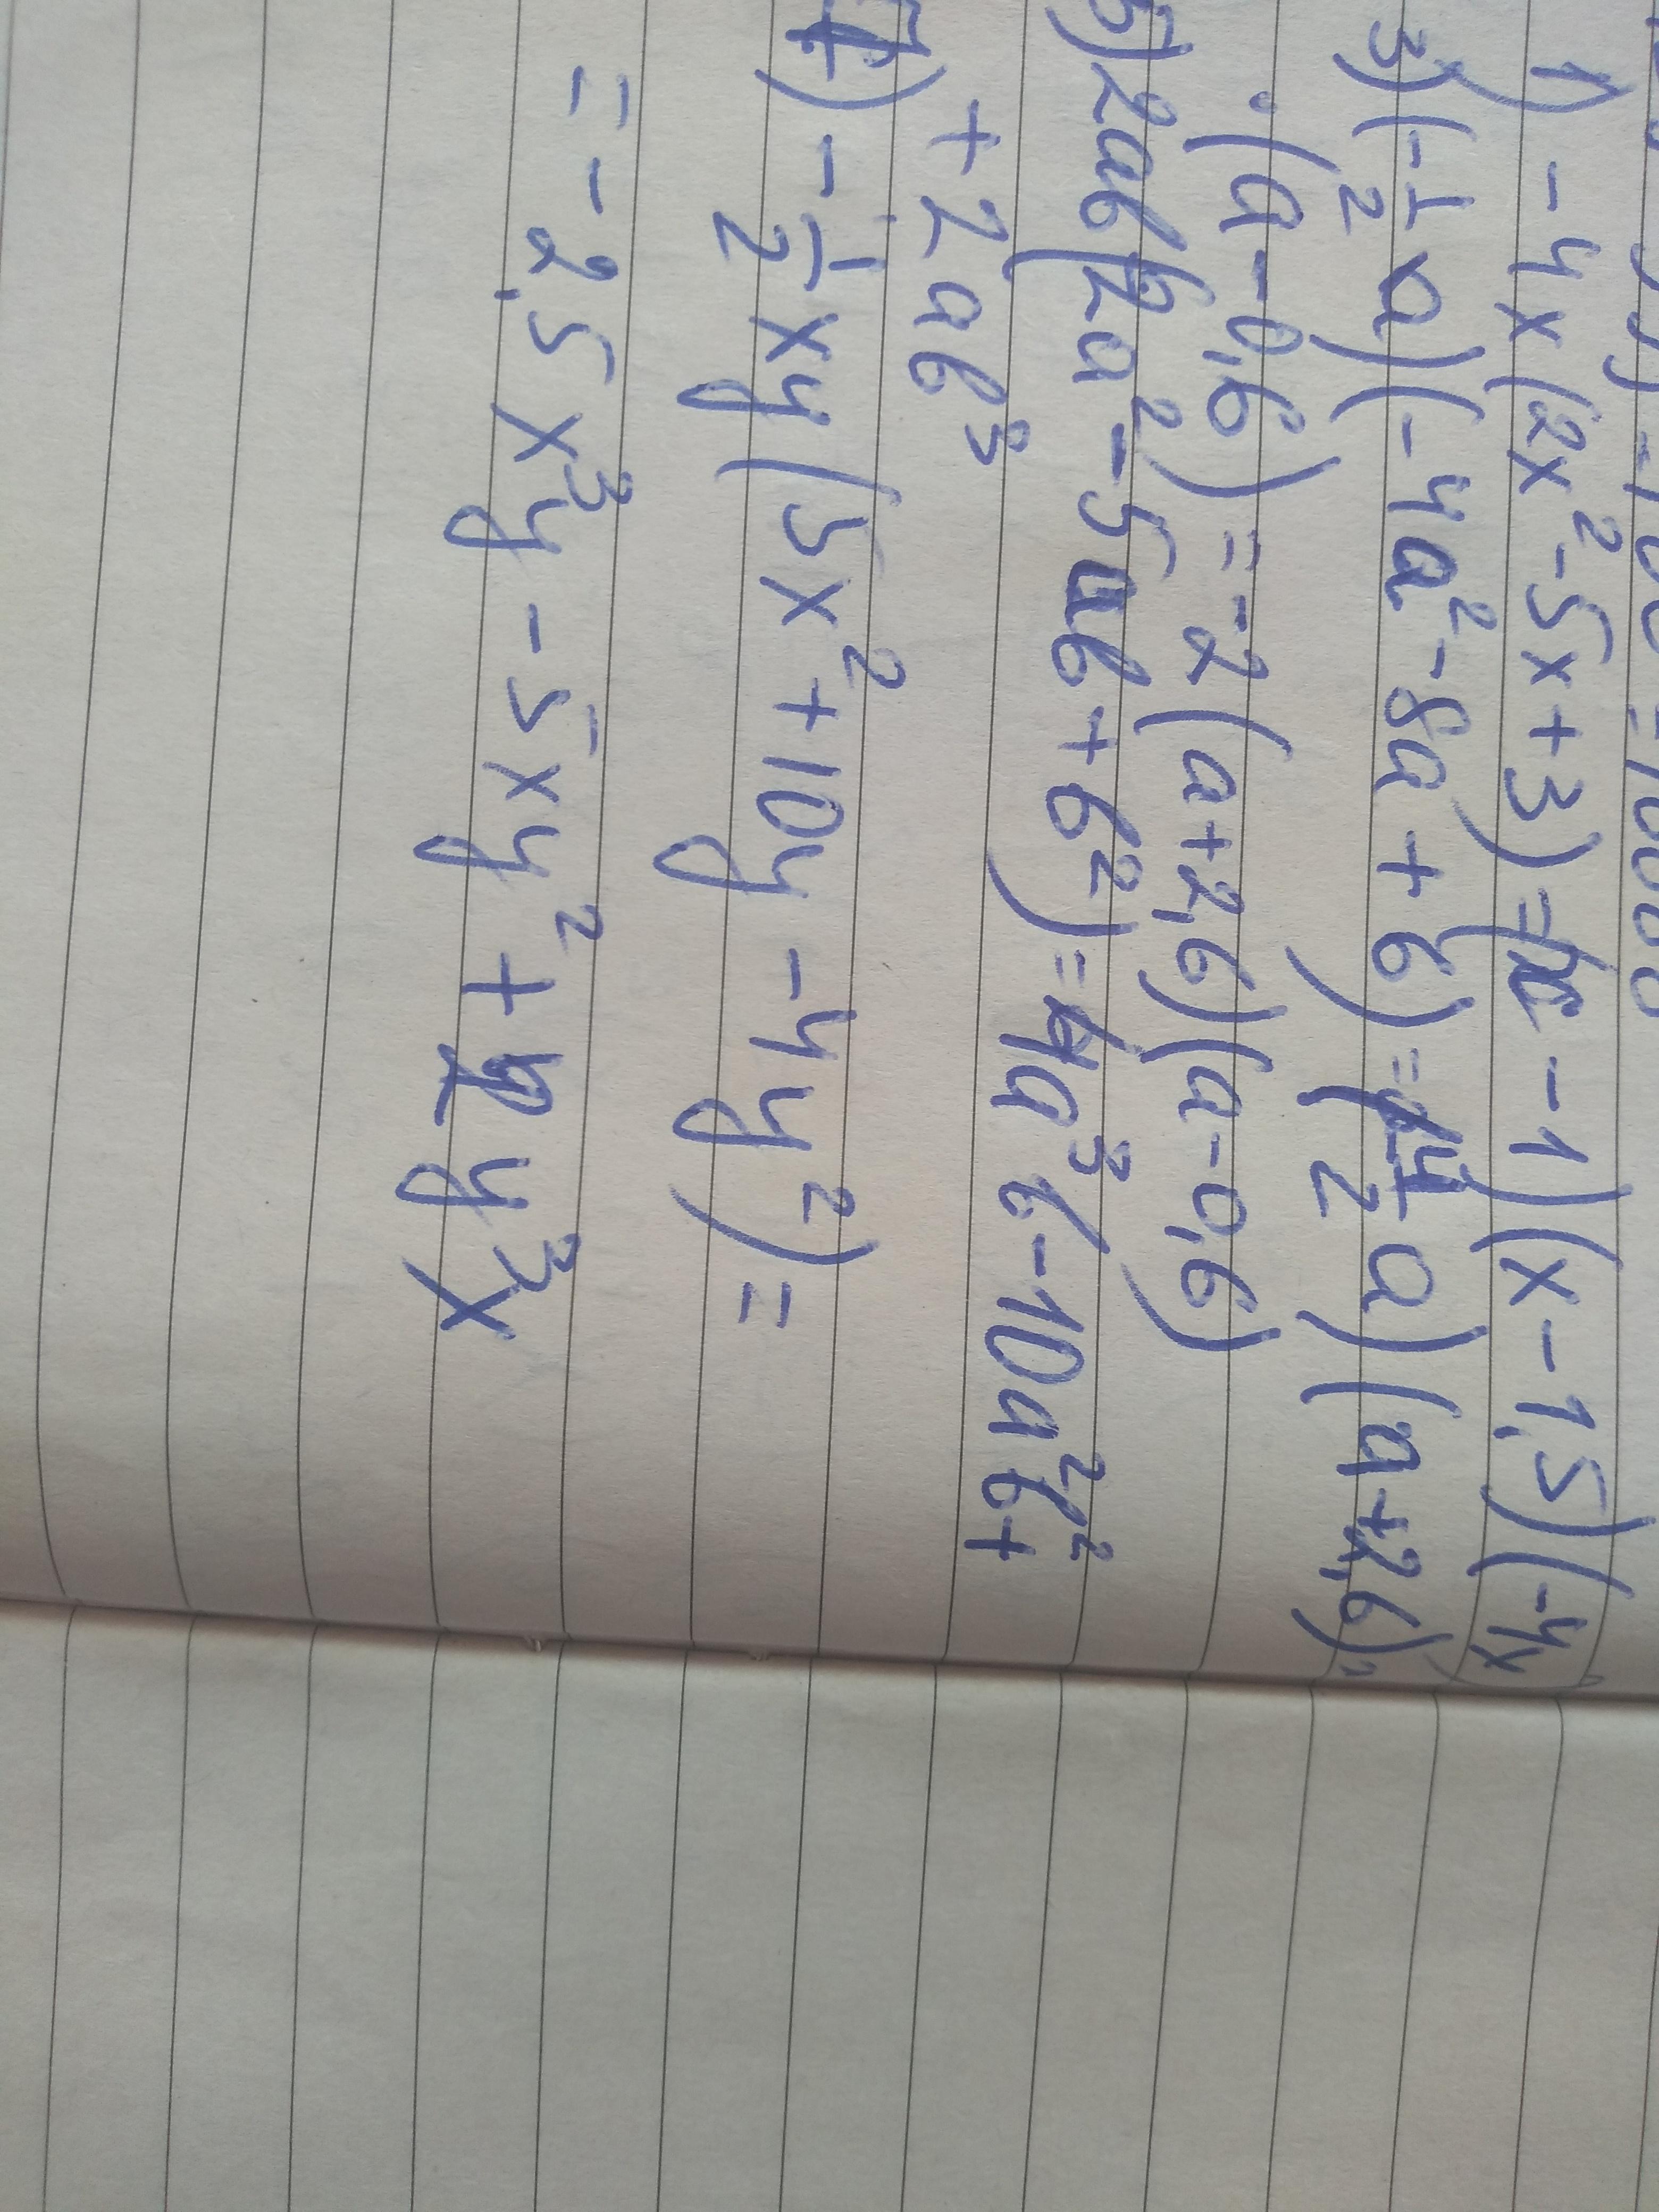 1) -4x(2x²-5x+3)= x-1)(x-1,5)(-4x
3)(-1/2 a)(-4a²-8a+6)= 1/2 a)(a+2,6)·
·(a-0,6)=-2(a+2,6)(a-0,6)
5)2ab(2a²-5ab+b²)=4a³b-10a²b²+
+2ab³
7) -1/2 xy(5x²+10y-4y²)=
=-2,5x³y-5xy²+2y³x